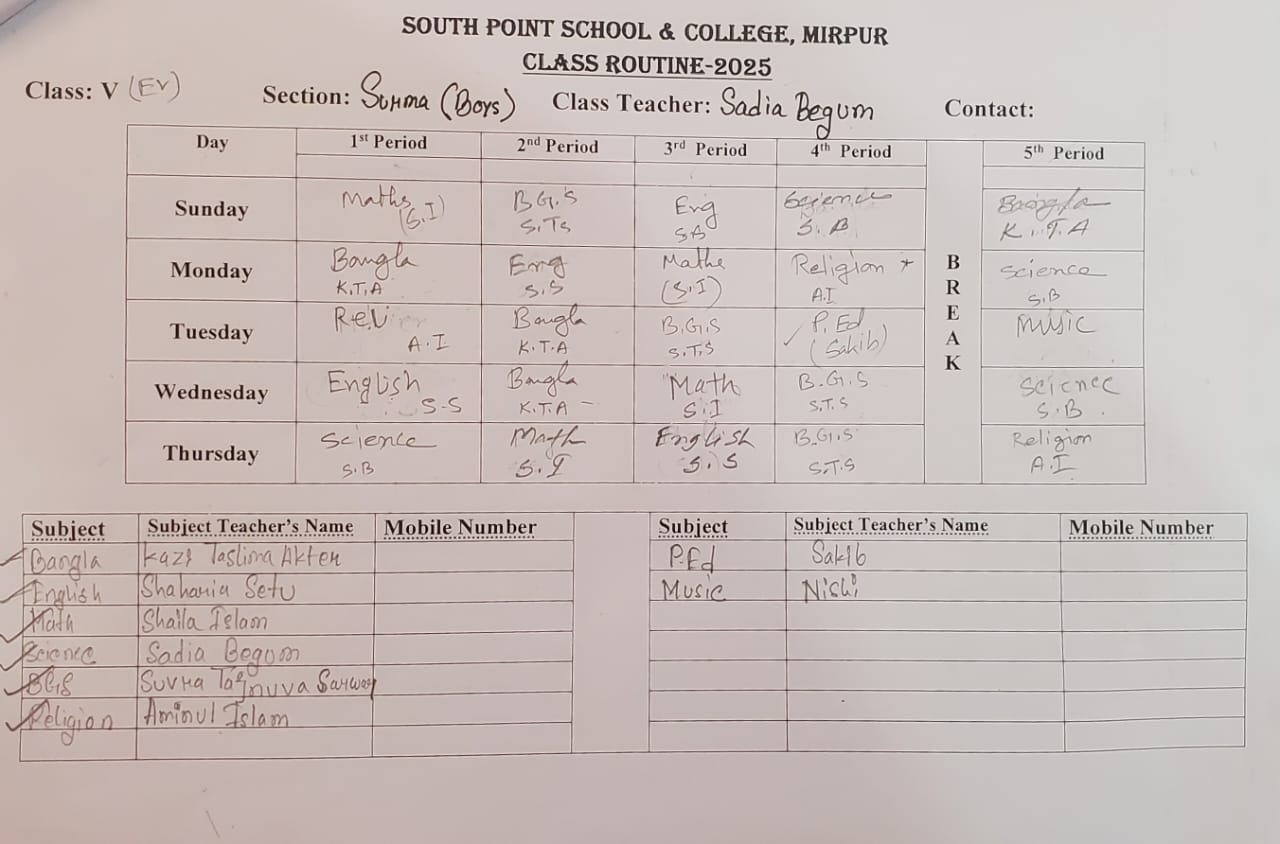 SOUTH POINT SCHOOL & COLLEGE, MIRPUR
CLASS ROUTINE-2025
Class: V (EV) Section: Surma (Boys) Class Teacher: Sadia Begum Contact:
Day 1st Period 2nd Period 3rd Period 4th Period BREAK 5th Period
Sunday Maths (S.I) B.G.S S.Ts Eng SB Science S.B Bangla K.T.A
Monday Bangla K.T.A Eng S.S Maths (S.I) Religion * A.I Science S.B
Tuesday Rel A.I Bangla K.T.A B.G.S S.T.S P.Ed (Sakib) Music
Wednesday English S-S Bangla K.T.A Math S.I B.G.S S.T.S Science S.B
Thursday Science S.B Math S.I English S.S B.G.S S.T.S Religion A.I
Subject Subject Teacher's Name Mobile Number Subject Subject Teacher's Name Mobile Number
Bangla Kazi Taslima Akter P.Ed Sakib
English Shahania Setu Music Nishi
Math Shaila Islam
Science Sadia Begum
BGS Suvra Sarwar
Religion Aminul Islam